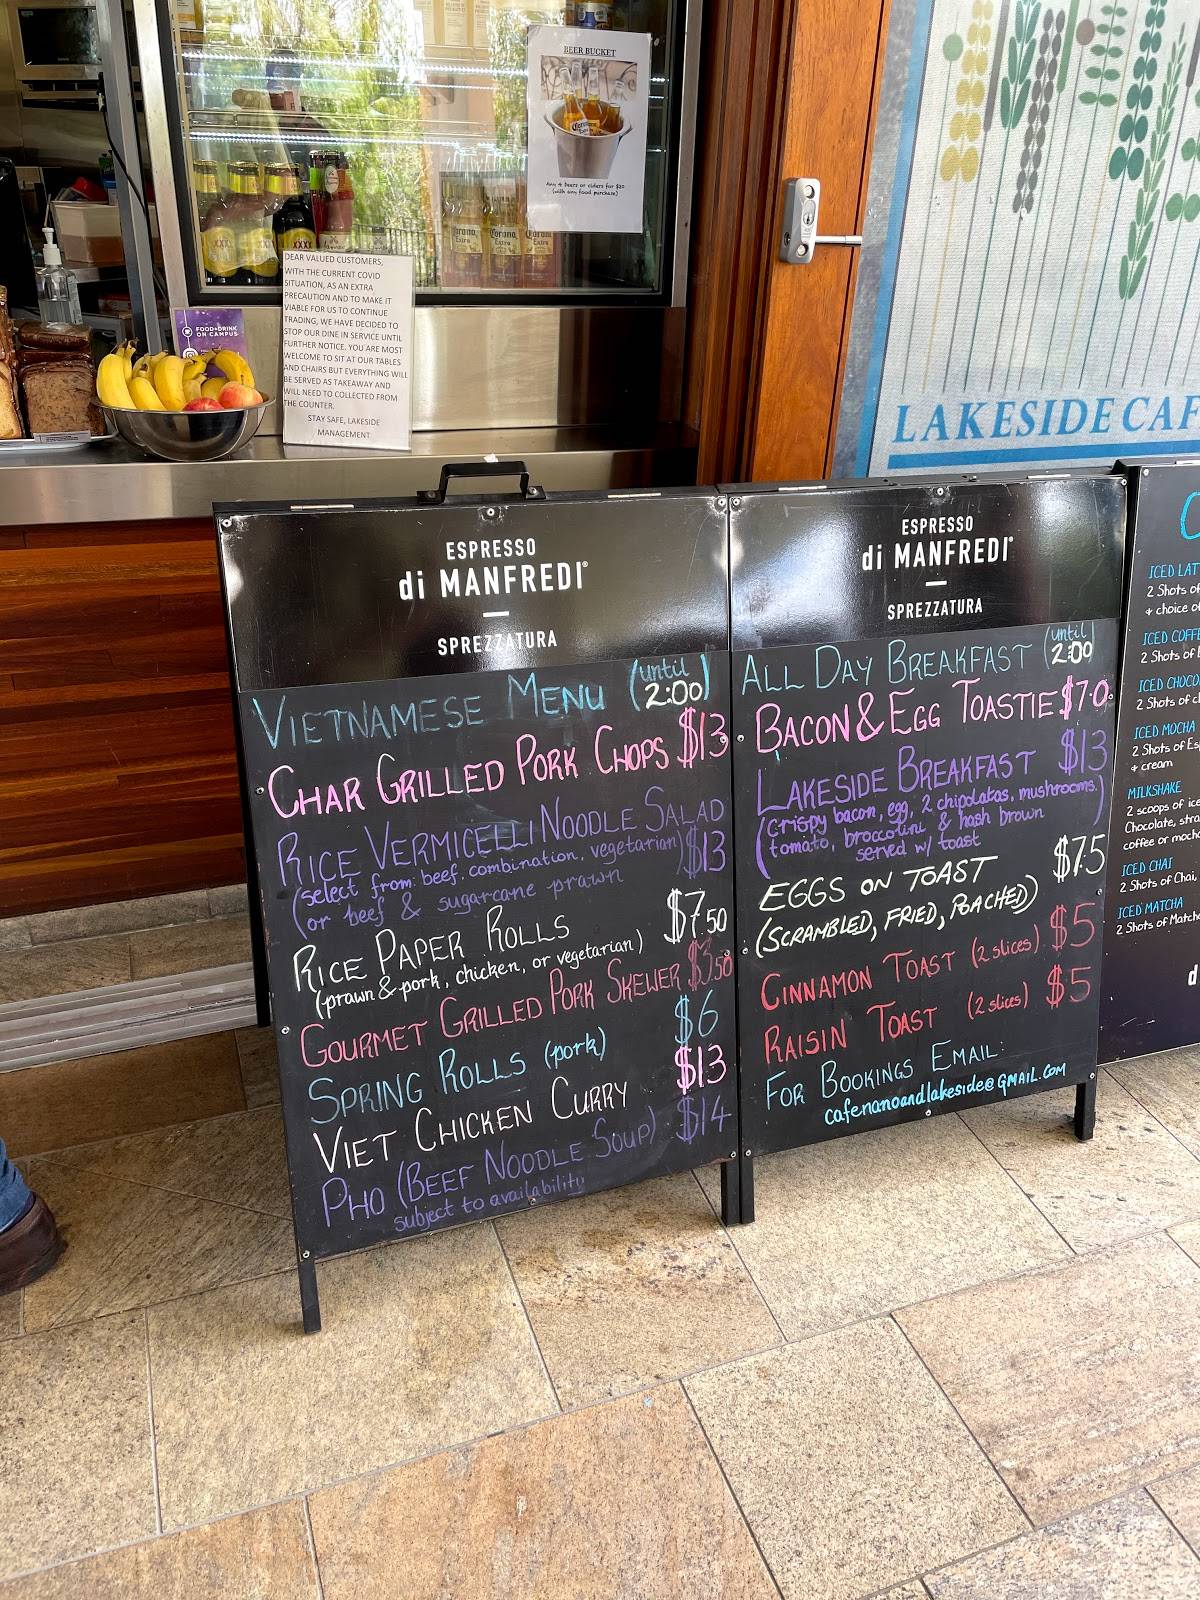 BEER BUCKET
Any 4 beers or ciders for $20
(with any food purchase)
DEAR VALUED CUSTOMERS,
WITH THE CURRENT COVID
SITUATION, AS AN EXTRA
PRECAUTION AND TO MAKE IT
VIABLE FOR US TO CONTINUE
TRADING, WE HAVE DECIDED TO
STOP OUR DINE IN SERVICE UNTIL
FURTHER NOTICE. YOU ARE MOST
WELCOME TO SIT AT OUR TABLES
AND CHAIRS BUT EVERYTHING WILL
BE SERVED AS TAKEAWAY AND
WILL NEED TO COLLECTED FROM
THE COUNTER.
STAY SAFE, LAKESIDE
MANAGEMENT
FOOD+DRINK
ON CAMPUS
XXXX
Corona
Extra
LAKESIDE CAF
ESPRESSO
di MANFREDI
SPREZZATURA
VIETNAMESE MENU (until 2:00)
CHAR GRILLED PORK CHOPS $13
RICE VERMICELLI NOODLE SALAD
(select from: beef, combination, vegetarian) $13
(or beef & sugarcane prawn
RICE PAPER ROLLS $7.50
(prawn & pork, chicken, or vegetarian)
GOURMET GRILLED PORK SKEWER $3.50
SPRING ROLLS (pork) $6
VIET CHICKEN CURRY $13
PHO (BEEF NOODLE SOUP) $14
subject to availability
ESPRESSO
di MANFREDI
SPREZZATURA
ALL DAY BREAKFAST (until 2:00)
BACON & EGG TOASTIE $7.0
LAKESIDE BREAKFAST $13
(crispy bacon, egg, 2 chipolatas, mushrooms,
tomato, broccolini & hash brown
served w/ toast
EGGS ON TOAST $7.5
(SCRAMBLED, FRIED, POACHED)
CINNAMON TOAST (2 slices) $5
RAISIN TOAST (2 slices) $5
FOR BOOKINGS EMAIL:
cafenanoandlakeside@GMAIL.COM
ICED LAT
2 Shots of
& choice o
ICED COFFE
2 Shots of
ICED CHOCO
2 Shots of c
ICED MOCHA
2 Shots of Esp
& cream
MILKSHAKE
2 scoops of ice
Chocolate, stra
coffee or mocha
ICED CHAI
2 Shots of Chai,
ICED MATCHA
2 Shots of Matcha